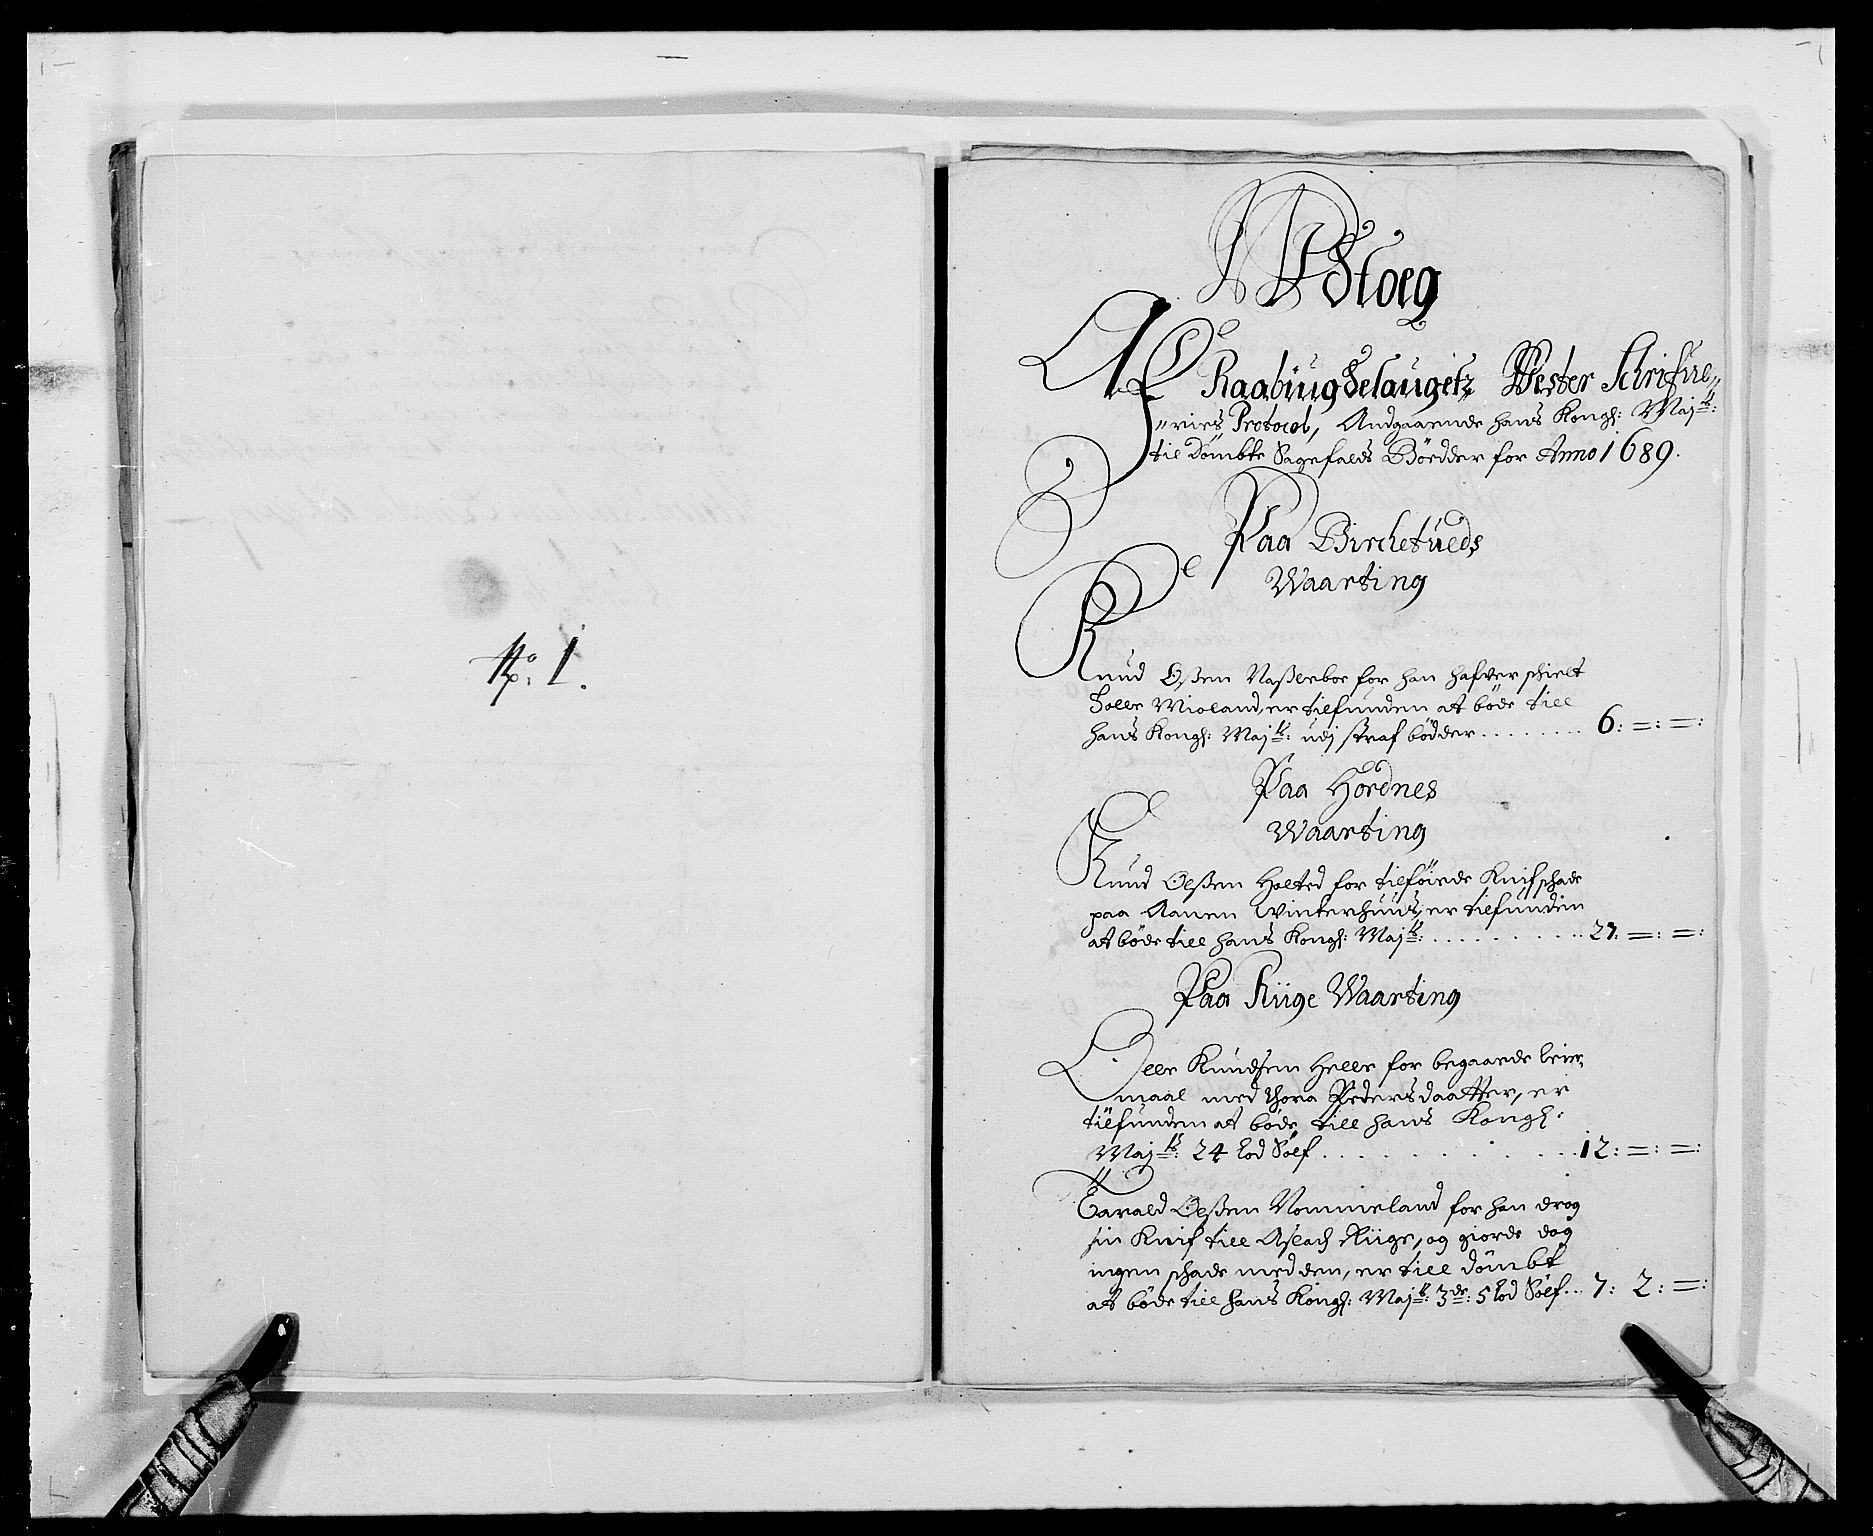 No. 1.
Udtoeg
Af Raabÿugdelaugetz Wester Schrifue-
-ries Protocol, Andgaaende hans Kongl: Maÿts:
til dömbte Sagefalds Böedder for Anno 1689.
Paa Birchetueds
Waarting
Knud Olßen Naßleboe for han hafver schielt
Solle Mioland, er tilfunden at böde till
hans Kongl: Maÿts: udj straf bödder ........ 6: =: =:
Paa Hördnes
Waarting
Knud Olßen Holted for tilföiede Knifschade
paa Aanen Winterhuus, er tilfunden
at böde till hans Kongl: Maÿts: .......... 27: =: =:
Paa Riige Waarting
Olle Knudsen Helle for begaaende leier-
maal med Thora Pedersdaatter, er
tilfunden at böde till hans Kongl:
Maÿts: 24 lod Sölf .......... 12: =: =:
Tarald Olßen Nommeland for han drog
sin Knif till Aslach Riige, og giorde dog
ingen schade med den, er till dömbt
at böde till hans Kongl: Maÿts: 3de: 5 lod Sölf .. 7: 2: =: